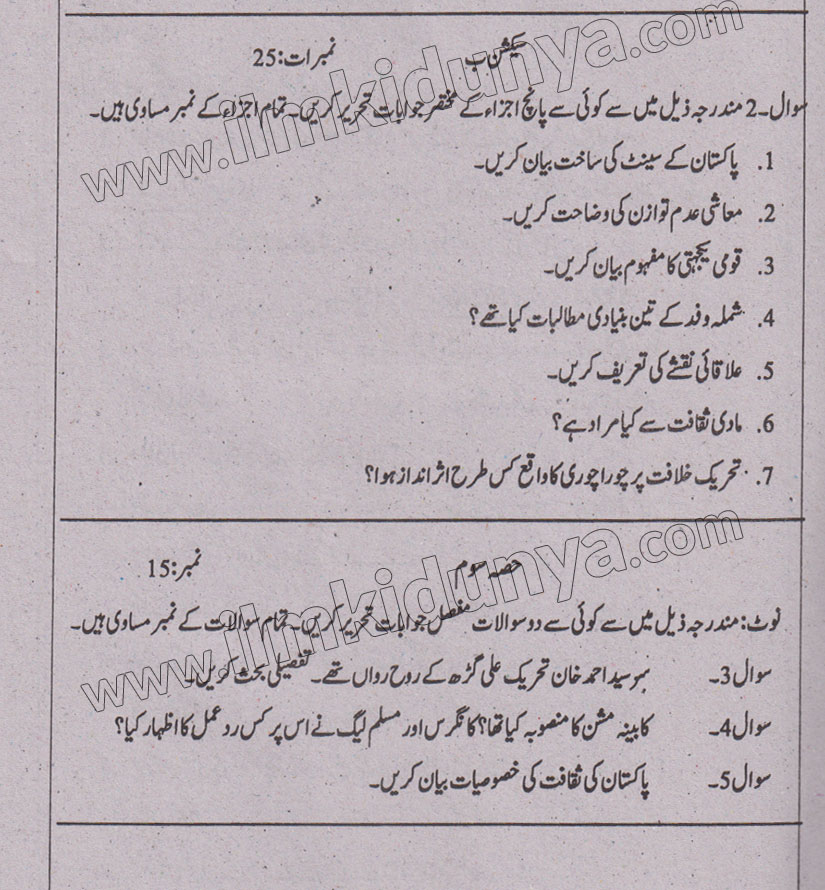 سیکشن ب نمبرات: 25
سوال۔2 مندرجہ ذیل میں سے کوئی سے پانچ اجزاء کے مختصر جوابات تحریر کریں۔ تمام اجزاء کے نمبر مساوی ہیں۔
1. پاکستان کے سینٹ کی ساخت بیان کریں۔
2. معاشی عدم توازن کی وضاحت کریں۔
3. قومی یکجہتی کا مفہوم بیان کریں۔
4. شملہ وفد کے تین بنیادی مطالبات کیا تھے؟
5. علاقائی نقشے کی تعریف کریں۔
6. مادی ثقافت سے کیا مراد ہے؟
7. تحریک خلافت پر چورا چوری کا واقع کس طرح اثر انداز ہوا؟
حصہ سوم نمبر: 15
نوٹ: مندرجہ ذیل میں سے کوئی سے دو سوالات مفصل جوابات تحریر کریں۔ تمام سوالات کے نمبر مساوی ہیں۔
سوال 3۔ سرسید احمد خان تحریک علی گڑھ کے روح رواں تھے۔ تفصیلی بحث کریں۔
سوال 4۔ کابینہ مشن کا منصوبہ کیا تھا؟ کانگرس اور مسلم لیگ نے اس پر کس رد عمل کا اظہار کیا؟
سوال 5۔ پاکستان کی ثقافت کی خصوصیات بیان کریں۔
www.ilmkidunya.com
www.ilmkidunya.com